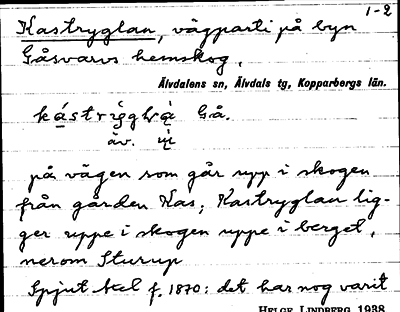 1-2
Kastryglan, vägparti på byn
Gåsvarvs hemskog.
Älvdalens sn, Älvdals tg, Kopparbergs län.
Gå.
äv.
på vägen som går upp i skogen
från gården Kas; Kastryglan lig-
ger uppe i skogen uppe i berget,
nerom Sturup
Spjut Axel f. 1870: det har nog varit
HELGE LINDBERG 1938